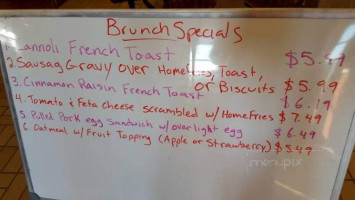 Brunch Specials
1. Cannoli French Toast $5.99
2. Sausag Gravy over Homefries, Toast,
or Biscuits $5.99
3. Cinnamon Raisin French Toast $6.19
4. Tomato & Feta cheese scrambled w/ Homefries $7.49
5. Pulled Pork egg Sandwich w/ over light egg $6.49
6. Oatmeal w/ Fruit Topping (Apple or Strawberry) $5.49
menupix